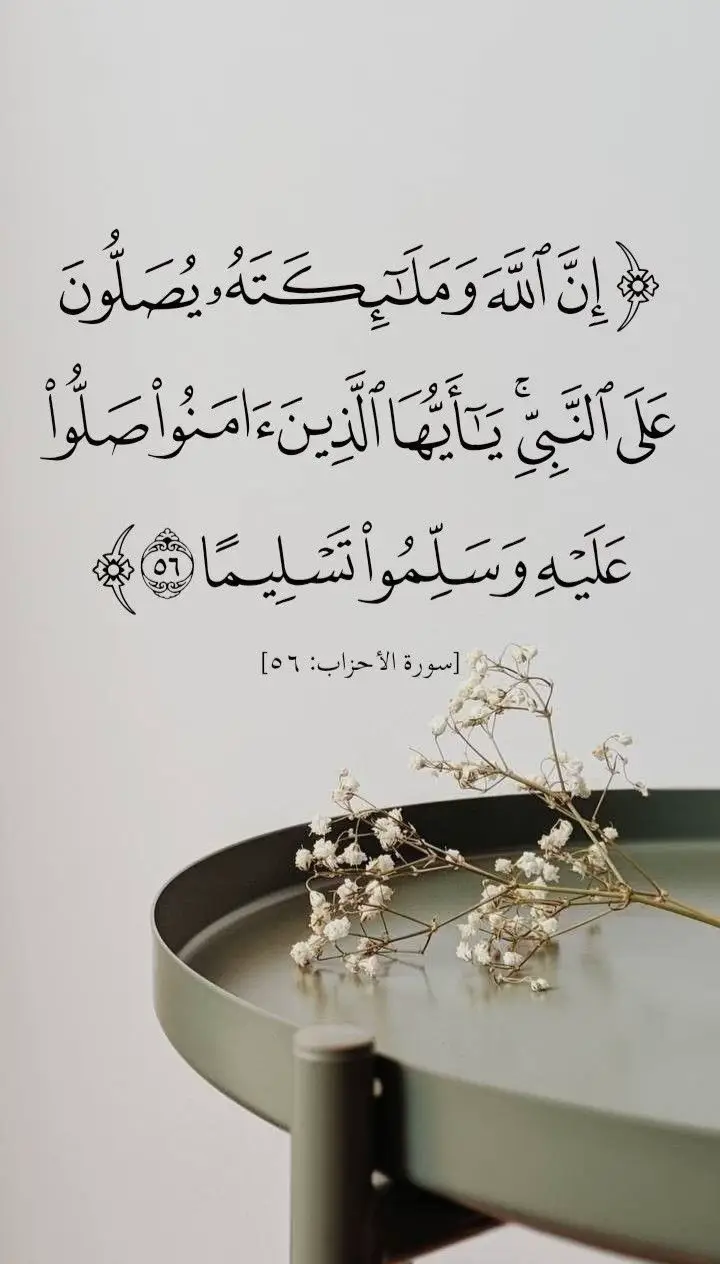 ﴿ إِنَّ ٱللَّهَ وَمَلَـٰٓئِكَتَهُۥ يُصَلُّونَ
عَلَى ٱلنَّبِىِّ ۚ يَـٰٓأَيُّهَا ٱلَّذِينَ ءَامَنُوا۟ صَلُّوا۟
عَلَيْهِ وَسَلِّمُوا۟ تَسْلِيمًا ٥٦ ﴾
[سورة الأحزاب: ٥٦]